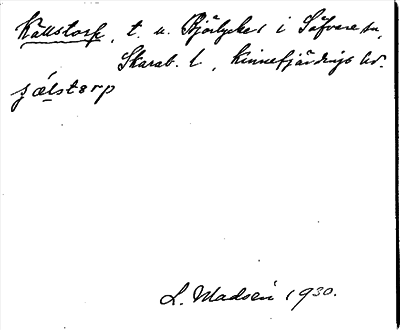 Källstorp, t. u. Björlycke i Söfvare sn,
Skarab. l., Kinnefjärdings hd.
ʂælstɵrp
L. Madsén 1930.